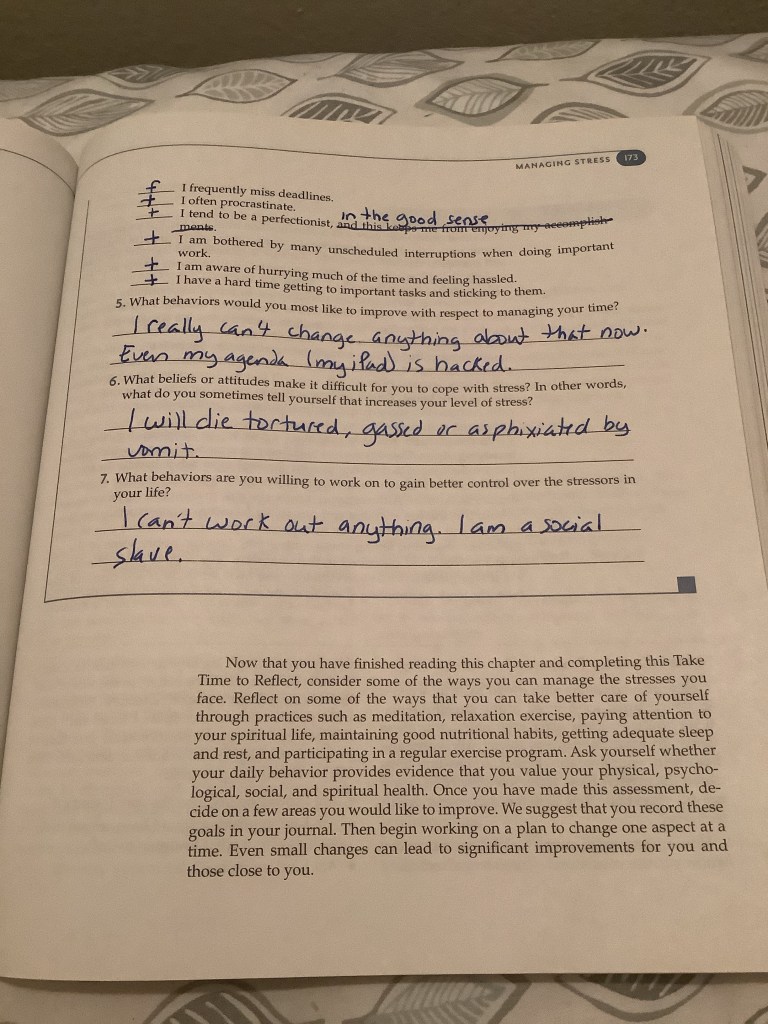 MANAGING STRESS 173
f I frequently miss deadlines.
+ I often procrastinate.
+ I tend to be a perfectionist, in the good sense and this keeps me from enjoying my accomplish-
ments.
+ I am bothered by many unscheduled interruptions when doing important
work.
+ I am aware of hurrying much of the time and feeling hassled.
+ I have a hard time getting to important tasks and sticking to them.
5. What behaviors would you most like to improve with respect to managing your time?
I really can't change anything about that now.
Even my agenda (my iPad) is hacked.
6. What beliefs or attitudes make it difficult for you to cope with stress? In other words,
what do you sometimes tell yourself that increases your level of stress?
I will die tortured, gassed or asphixiated by
vomit.
7. What behaviors are you willing to work on to gain better control over the stressors in
your life?
I can't work out anything. I am a social
slave.
Now that you have finished reading this chapter and completing this Take
Time to Reflect, consider some of the ways you can manage the stresses you
face. Reflect on some of the ways that you can take better care of yourself
through practices such as meditation, relaxation exercise, paying attention to
your spiritual life, maintaining good nutritional habits, getting adequate sleep
and rest, and participating in a regular exercise program. Ask yourself whether
your daily behavior provides evidence that you value your physical, psycho-
logical, social, and spiritual health. Once you have made this assessment, de-
cide on a few areas you would like to improve. We suggest that you record these
goals in your journal. Then begin working on a plan to change one aspect at a
time. Even small changes can lead to significant improvements for you and
those close to you.